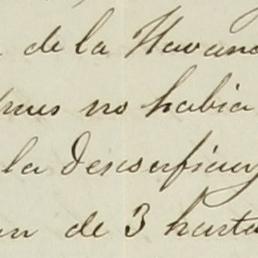 de la Havana
pues no habia
la desconfianz
en de 3 hasta